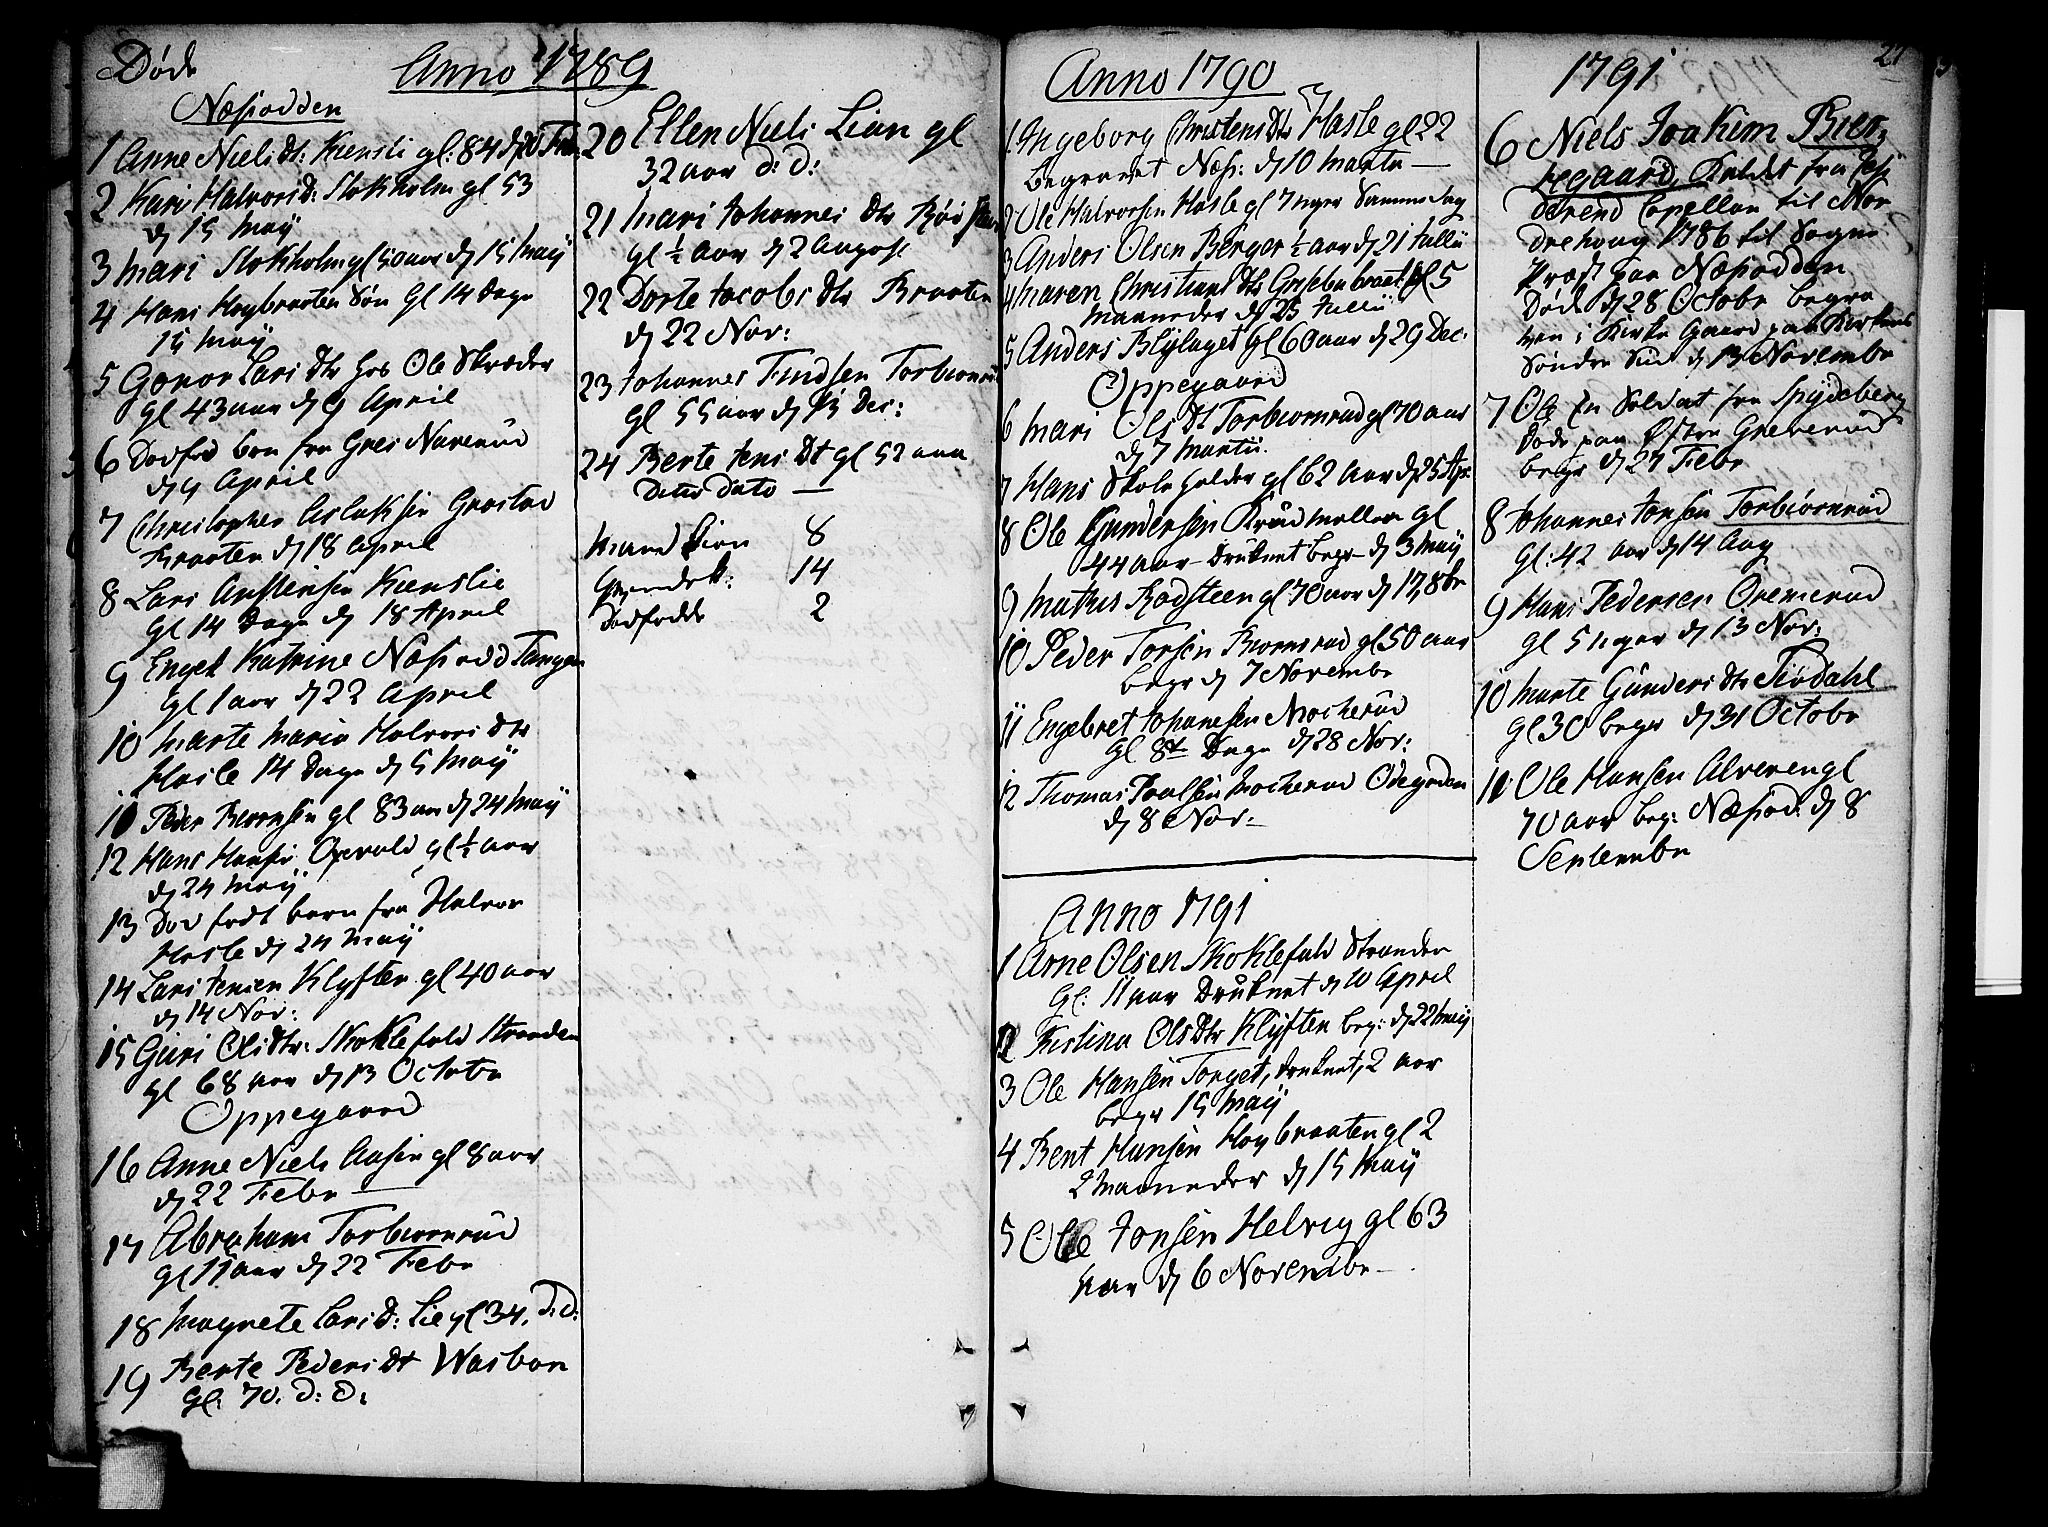 Døde Anno 1789
Næsodden
1 Anne Nielsdt: Kiensli gl: 84 d 20 Feb
2 Kari Halvorsd: Stokholm gl 53
d 15 May
3 Mari Stokholm gl 50 aar d 15 May
4 Hans Høybraaten Søn Gl 14 Dage
15 May
5 Gønor Lars Dtr hos Ole Skræder
gl 43 aar d 9 April
6 Dødfød barn fra Greis Narverud
d 9 April
7 Christopher Aslaksen Grostad
Braaten d 18 April
8 Lars Anstensen Kienslie
gl 14 Dage d 18 April
9 Engel Katrine Næsodd Tangen
gl 1 aar d 22 April
10 Marte Maria Halvors Dtr
Hasle 14 Dage d 5 May
11 Peder Biørnsen gl 83 aar d 24 May
12 Hans Hansen Opvold gl ½ aar
d 24 May
13 Død født barn fra Halvor
Hasle d 24 May
14 Lars Jensen Klyften gl 40 aar
d 14 Nov:
15 Guri Ols Dtr: Skoklefald Stranden
gl 68 aar d 13 Octobr
Oppegaard
16 Anne Niels Aasen gl 8 aar
d 22 Febr
17 Abraham Torbiørnrud
gl 11 aar d 22 Febr
18 Magrete Lars D: Lie gl 34. d: d:
19 Berte Peders Dt Wasbon
Gl: 70. d: d:
20 Ellen Niels Lian gl
32 aar d: d:
21 Mari Johannes Dtr
gl ½ aar d 2 August
22 Dorte Jacobs Dtr Braaten
d 22 Nov:
23 Johannes Findsen Torbiørnrud
gl 55 aar d 13 Dec:
24 Berte Jens Dt gl 52 aar
Ditto Dato
Mand Kiøn 8
Qvindek: 14
Dødfødde 2
Anno 1790
1 Ingeborg Christens Dtr Hasle gl 22
Begravet Næs: d 10 Martii
2 Ole Halvorsen Hasle gl 7 uger Samme Dag
3 Anders Olsen Berger ½ aar d 21 Julii
4 Maren Christians Dtr gl 5
Maaneder d 25 Julii
5 Anders Blylaget Gl 60 aar d 29 Dec:
Oppegaard
6 Mari Ols Dt Torbiørnrud gl 70 aar
d 7 Martii.
7 Hans Skoleholder gl 62 aar d 25 Apr:
8 Ole Gundersen Krudmøllen gl
44 aar Druknet begr d 3 May
9 Matius Rødsteen gl 70 aar d 17, 8br
10 Peder Torsen Biørnsrud gl 50 aar
begr d 7 Novembr
11 Engebret Johansen Mocherud
Gl 8te Dage d 28 Nov:
12 Thomas Poulsen Mocherud Ødegarden
d 8 Nov:
Anno 1791
1 Arne Olsen Skoklefald Stranden
Gl: 11 aar Druknet d 10 April
2 Kistina Ols Dtr Klyften beg: d 22 May
3 Ole Hansen Torget, druknet, 2 aar
begr 15 May
4 Bent Hansen Høybraaten gl 2
2 Maaneder d 15 May
5 Ole Jonsen Helvig gl 63
aar d 6 Novembr
1791 21
6 Niels Joakim Bier-
regaard, Kaldet fra
Capellan til Nor-
drehoug 1786 til Sogne
Præst paa Næsodden
Døde d 28 Octobr begra-
ven i Kirke Gaard paa Kirkens
Søndre Siid d 13 Novembr
7 Ole En Soldat fra Spydeberg
Døde paa Østre Greverud
begr d 27 Febr
8 Johannes Jonsen Torbiørnrud
Gl: 42 aar d 14 Aug
9 Hans Pedersen Oremerud
gl 5 uger d 13 Nov:
10 Marte Gunders Dtr Siødahl
Gl 30 begr d 31 Octobr
11 Ole Hansen Alveren gl
70 aar beg: Næsod: d 8
Septembr